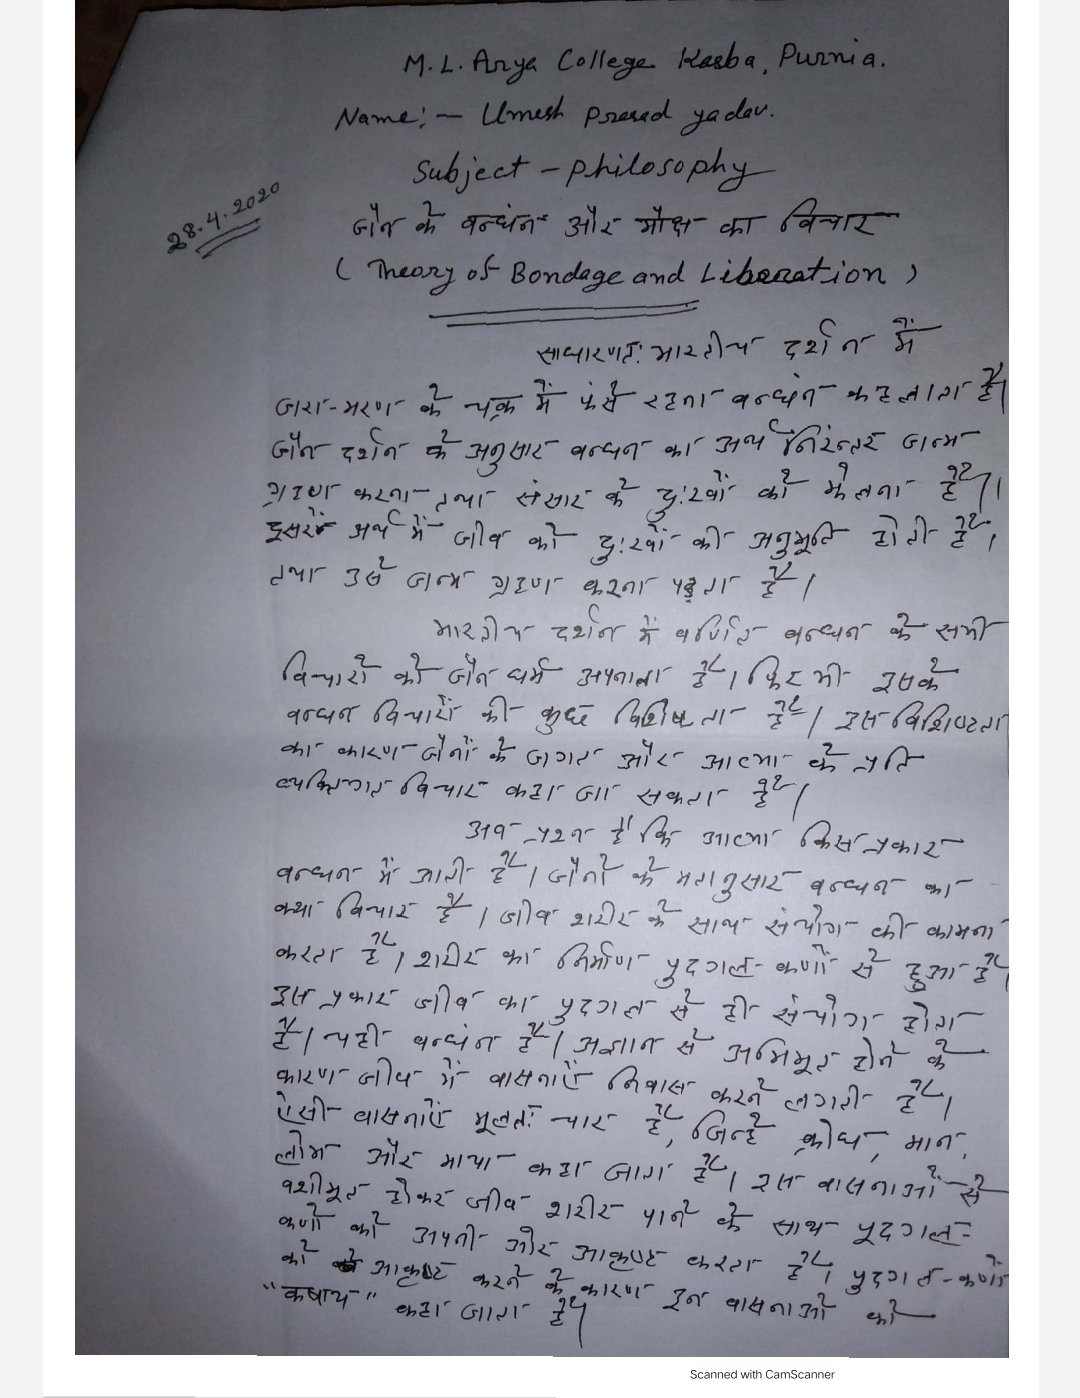 M.L. Arya College Kasba, Purnia.
Name:- Umesh Prasad yadav.
Subject - Philosophy
28.4.2020
जैन के बन्धन और मोक्ष का विचार
( Theory of Bondage and Liberation )
साधारणत: भारतीय दर्शन में
जरा-मरण के चक्र में फंसे रहना बन्धन कहलाता है।
जैन दर्शन के अनुसार बन्धन का अर्थ निरंन्तर जन्म
ग्रहण करना तथा संसार के दु:खों को झेलना है।
दुसरे अर्थ में जीव को दु:खों की अनुभूति होती है,
तथा उसे जन्म ग्रहण करना पड़ता है।
भारतीय दर्शन में वर्णित बन्धन के सभी
विचारों को जैन धर्म अपनाता है। फिर भी इसके
बन्धन विचारों की कुछ विशिष्टता है। इस विशिष्टता
का कारण जैनों के जगत और आत्मा के प्रति
व्यक्तिगत विचार कहा जा सकता है।
अब प्रश्न है कि आत्मा किस प्रकार
बन्धन में आती है। जैनों के मतानुसार बन्धन का
क्या विचार है। जीव शरीर के साथ संयोग की कामना
करता है। शरीर का निर्माण पुदगल-कणों से हुआ है।
इस प्रकार जीव का पुदगल से ही संयोग होता
है। यही बन्धन है। अज्ञान से अभिभूत होने के
कारण जीव में वासनाएँ निवास करने लगती है।
ऐसी वासनाएँ मूलत: चार है, जिन्हे क्रोध, मान,
लोभ और माया कहा जाता है। इस वासनाओं से
वशीभूत होकर जीव शरीर पाने के साथ पुदगल-
कणों को अपनी ओर आकृष्ट करता है। पुदगल-कणों
को आकृष्ट करने के कारण इन वासनाओं को
"कषाय" कहा जाता है।
Scanned with CamScanner